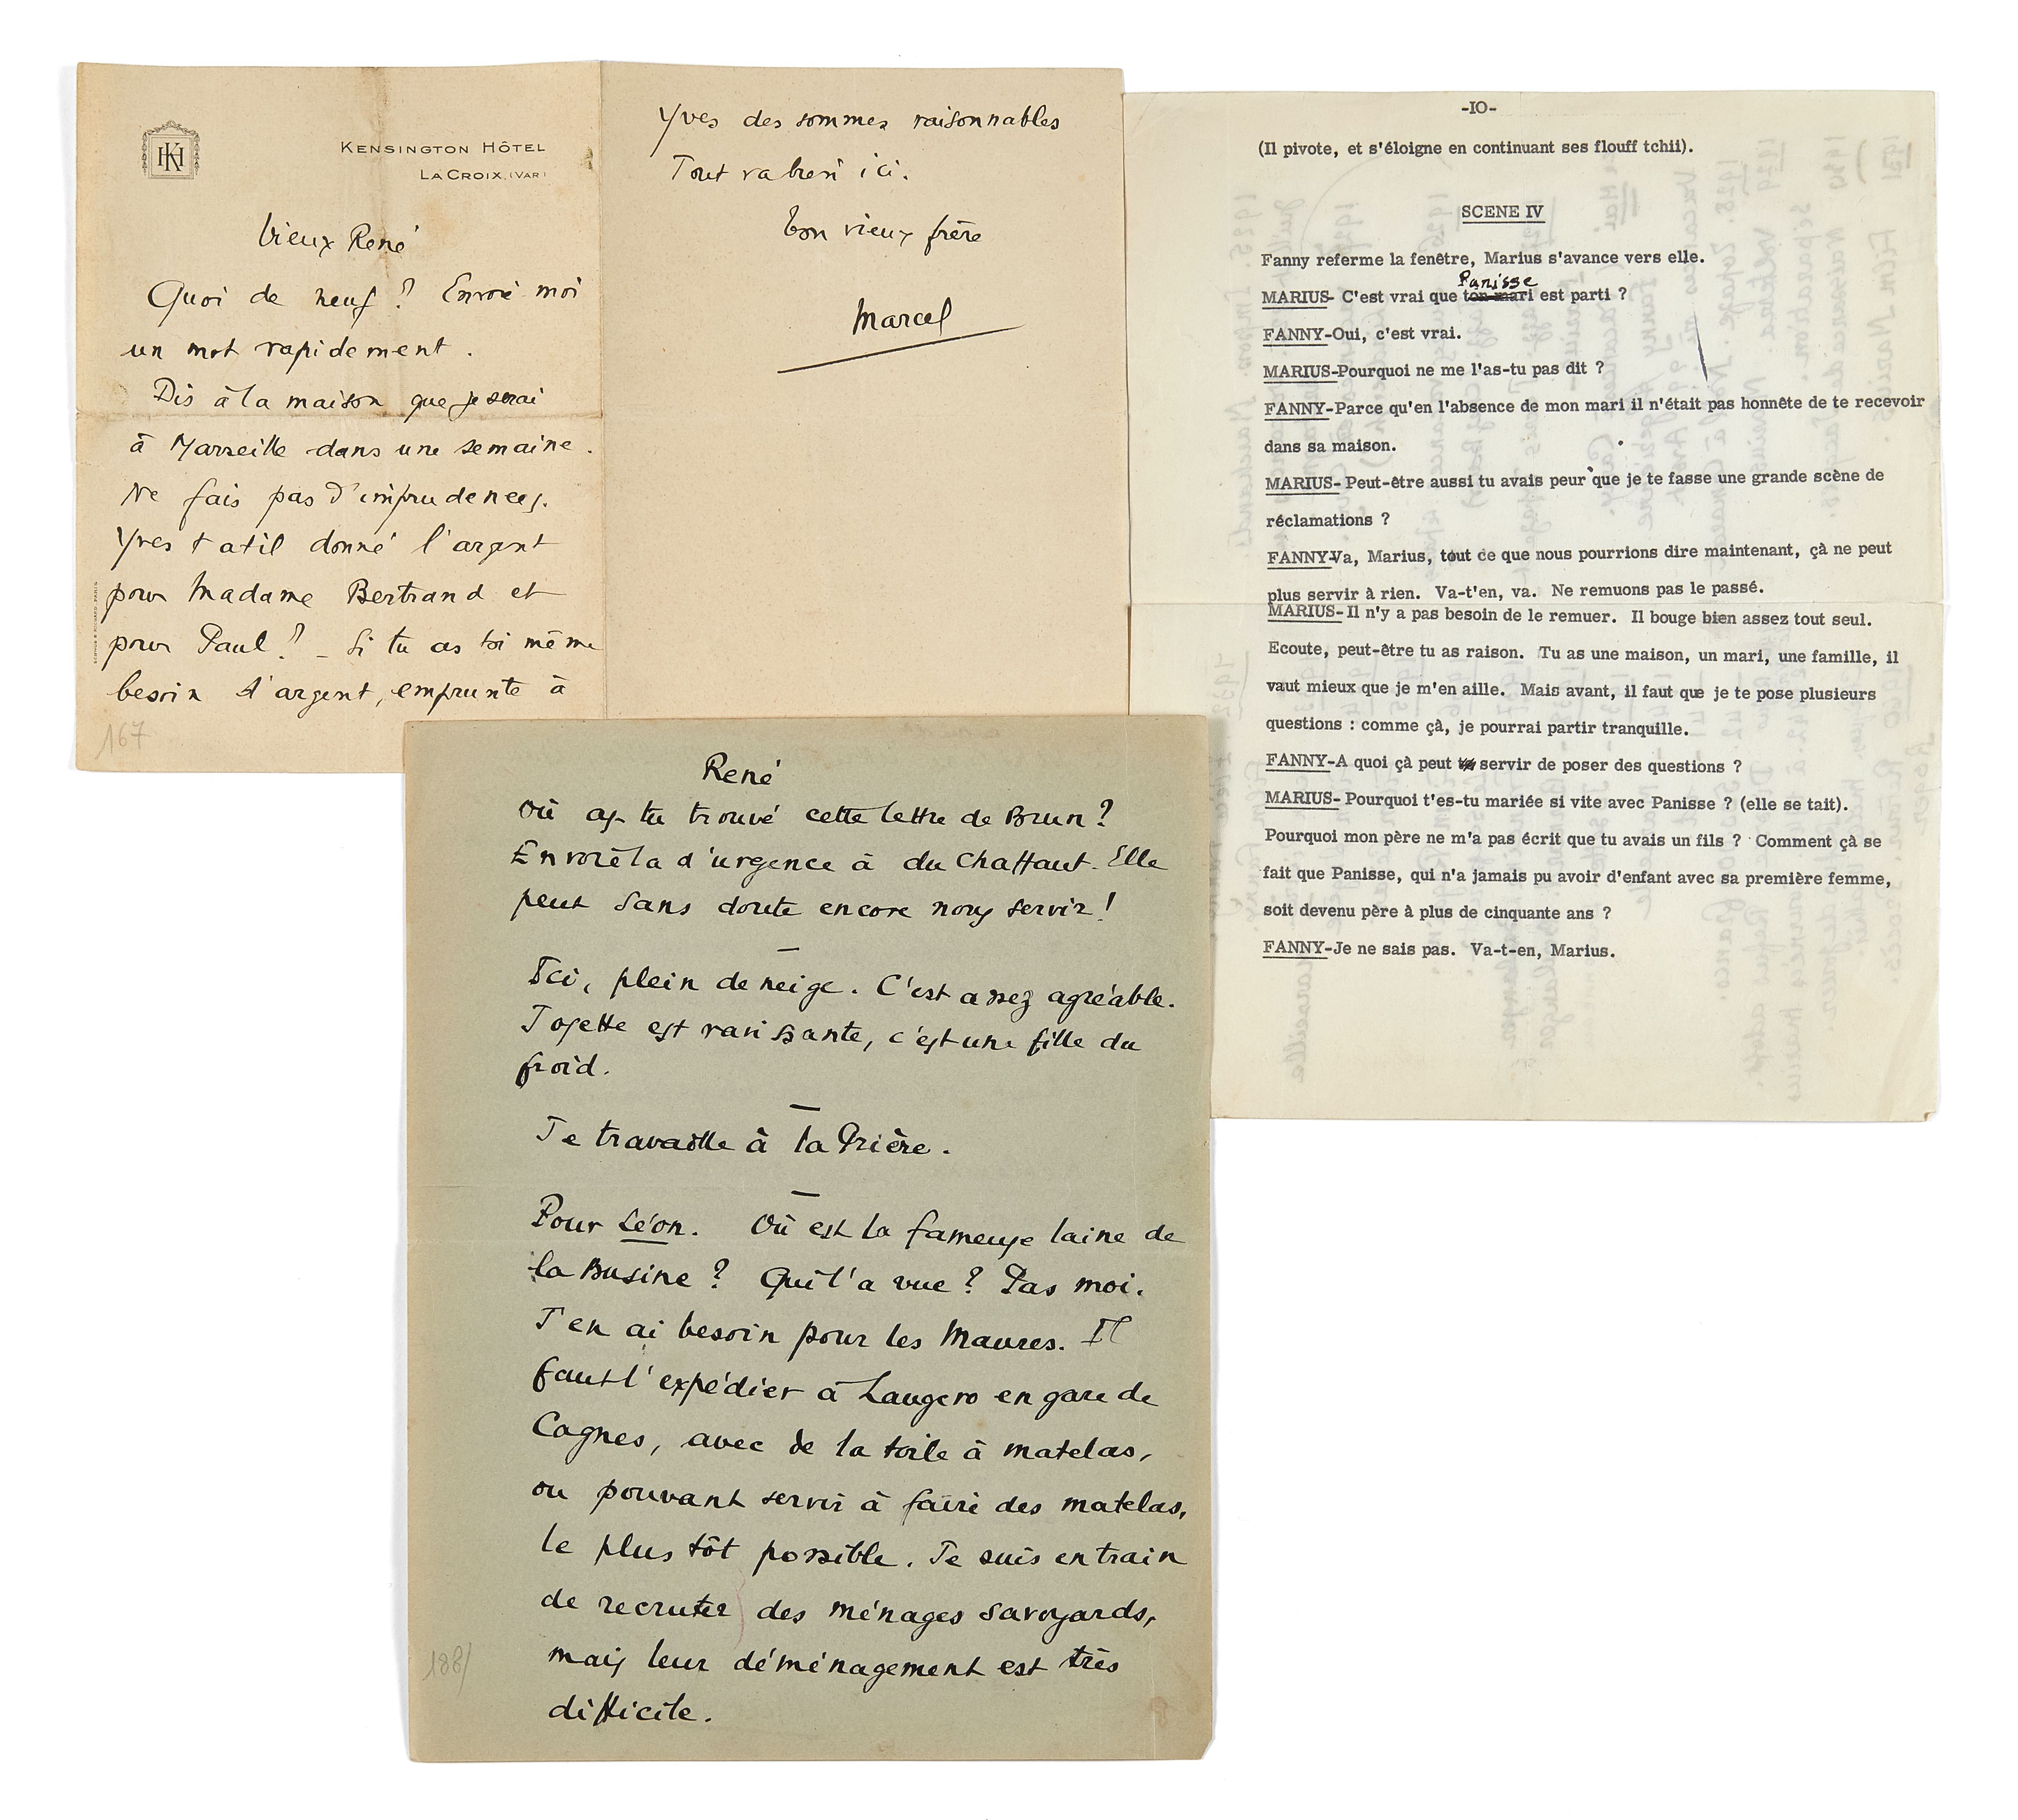 KH
KENSINGTON HÔTEL
LA CROIX, (VAR)
Vieux René
Quoi de neuf ? Envoie moi
un mot rapidement.
Dis à la maison que je serai
à Marseille dans une semaine.
Ne fais pas d'imprudences.
Yves t atil donné l'argent
pour Madame Bertrand et
pour Paul ? _ Si tu as toi même
besoin d'argent, emprunte à
167
Yves des sommes raisonnables
Tout va bien ici.
ton vieux frère
Marcel
-IO-
(Il pivote, et s'éloigne en continuant ses flouff tchii).
SCENE IV
Fanny referme la fenêtre, Marius s'avance vers elle.
Panisse
MARIUS- C'est vrai que ton mari est parti ?
FANNY-Oui, c'est vrai.
MARIUS-Pourquoi ne me l'as-tu pas dit ?
FANNY-Parce qu'en l'absence de mon mari il n'était pas honnête de te recevoir
dans sa maison.
MARIUS- Peut-être aussi tu avais peur que je te fasse une grande scène de
réclamations ?
FANNY-Va, Marius, tout ce que nous pourrions dire maintenant, çà ne peut
plus servir à rien. Va-t'en, va. Ne remuons pas le passé.
MARIUS- Il n'y a pas besoin de le remuer. Il bouge bien assez tout seul.
Ecoute, peut-être tu as raison. Tu as une maison, un mari, une famille, il
vaut mieux que je m'en aille. Mais avant, il faut que je te pose plusieurs
questions : comme çà, je pourrai partir tranquille.
FANNY-A quoi çà peut servir de poser des questions ?
MARIUS- Pourquoi t'es-tu mariée si vite avec Panisse ? (elle se tait).
Pourquoi mon père ne m'a pas écrit que tu avais un fils ? Comment çà se
fait que Panisse, qui n'a jamais pu avoir d'enfant avec sa première femme,
soit devenu père à plus de cinquante ans ?
FANNY-Je ne sais pas. Va-t-en, Marius.
René
Où as-tu trouvé cette lettre de Brun ?
Envoie la d'urgence à du Chaffaut. Elle
peut sans doute encore nous servir !
—
Ici, plein de neige. C'est assez agréable.
Josette est ravissante, c'est une fille du
froid.
—
Je travaille à la Prière.
—
Pour Léon. Où est la fameuse laine de
la Busine ? Qui l'a vue ? Pas moi.
J'en ai besoin pour les Maures. Il
faut l'expédier à Laugero en gare de
Cagnes, avec de la toile à matelas,
ou pouvant servir à faire des matelas,
le plus tôt possible. Je suis en train
de recruter des ménages savoyards,
mais leur déménagement est très
difficile.
188/